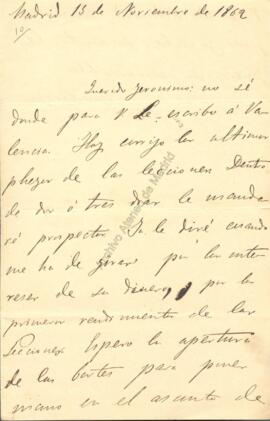 Madrid 13 de Noviembre de 1862
Querido Jeronimo: no sé
donde para V Le escribo á Va-
lencia. Hoy corrijo los ultimos
pliegos de las lecciones Dentro
de dos ó tres dias le manda
ré prospectos. Ya le diré cuando
me ha de girar por los inte-
reses de su dinero, por los
primeros rendimientos de las
Lecciones. Espero la apertura
de las Cortes para poner
mano en el asunto de
Archivo Ateneo de Madrid